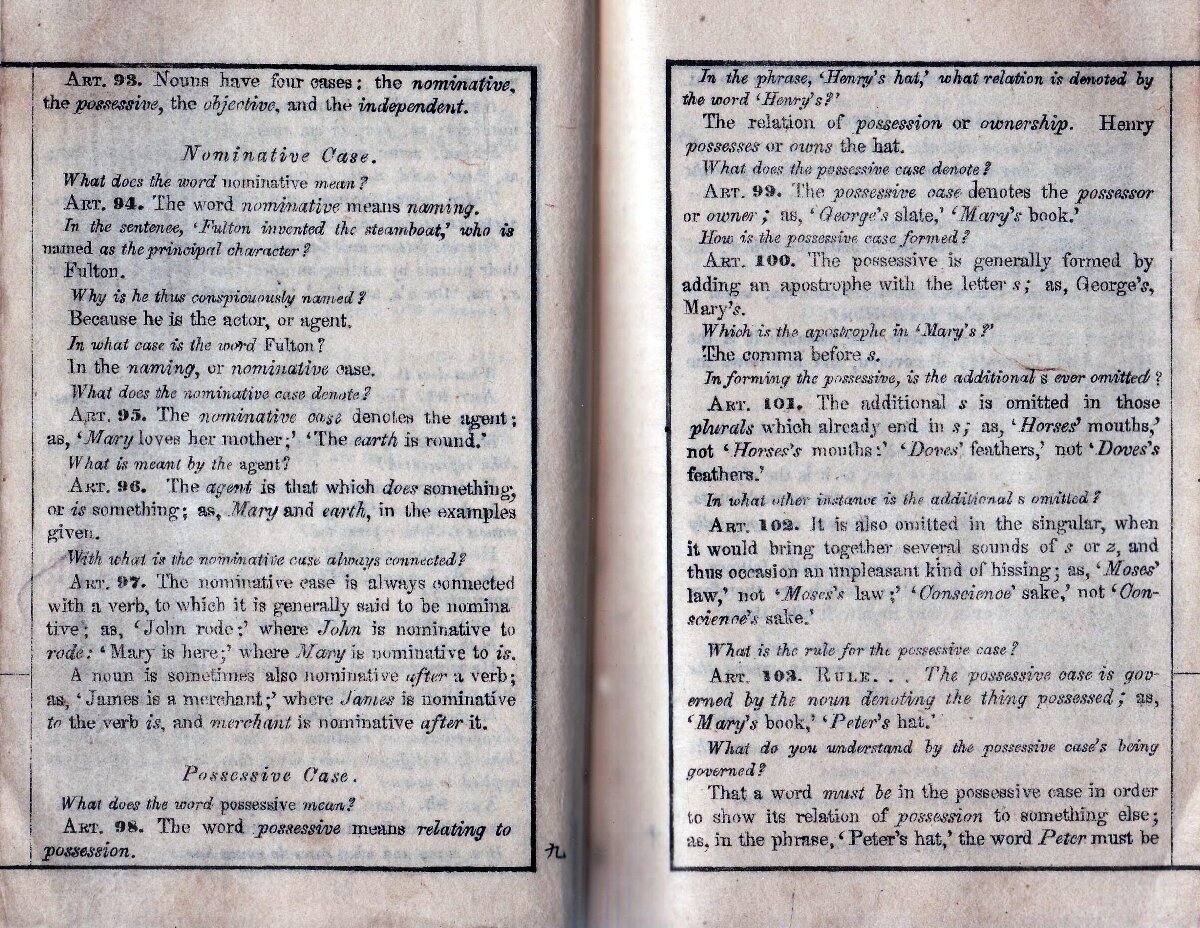 ART. 93. Nouns have four cases: the nominative,
the possessive, the objective, and the independent.
Nominative Case.
What does the word nominative mean?
ART. 94. The word nominative means naming.
In the sentence, ‘Fulton invented the steamboat,’ who is
named as the principal character?
Fulton.
Why is he thus conspicuously named?
Because he is the actor, or agent.
In what case is the word Fulton?
In the naming, or nominative case.
What does the nominative case denote?
ART. 95. The nominative case denotes the agent;
as, ‘Mary loves her mother;’ ‘The earth is round.’
What is meant by the agent?
ART. 96. The agent is that which does something,
or is something; as, Mary and earth, in the examples
given.
With what is the nominative case always connected?
ART. 97. The nominative case is always connected
with a verb, to which it is generally said to be nomina
tive; as, ‘John rode;’ where John is nominative to
rode: ‘Mary is here;’ where Mary is nominative to is.
A noun is sometimes also nominative after a verb;
as, ‘James is a merchant;’ where James is nominative
to the verb is, and merchant is nominative after it.
Possessive Case.
What does the word possessive mean?
ART. 98. The word possessive means relating to
possession.
九
In the phrase, ‘Henry's hat,’ what relation is denoted by
the word ‘Henry's?’
The relation of possession or ownership. Henry
possesses or owns the hat.
What does the possessive case denote?
ART. 99. The possessive case denotes the possessor
or owner; as, ‘George's slate,’ ‘Mary's book.’
How is the possessive case formed?
ART. 100. The possessive is generally formed by
adding an apostrophe with the letter s; as, George's,
Mary's.
Which is the apostrophe in ‘Mary's?’
The comma before s.
In forming the possessive, is the additional s ever omitted?
ART. 101. The additional s is omitted in those
plurals which already end in s; as, ‘Horses' mouths,’
not ‘Horses's mouths:’ ‘Doves' feathers,’ not ‘Doves's
feathers.’
In what other instance is the additional s omitted?
ART. 102. It is also omitted in the singular, when
it would bring together several sounds of s or z, and
thus occasion an unpleasant kind of hissing; as, ‘Moses'
law,’ not ‘Moses's law;’ ‘Conscience' sake,’ not ‘Con-
science's sake.’
What is the rule for the possessive case?
ART. 103. RULE. . . The possessive case is gov-
erned by the noun denoting the thing possessed; as,
‘Mary's book,’ ‘Peter's hat.’
What do you understand by the possessive case's being
governed?
That a word must be in the possessive case in order
to show its relation of possession to something else;
as, in the phrase, ‘Peter's hat,’ the word Peter must be